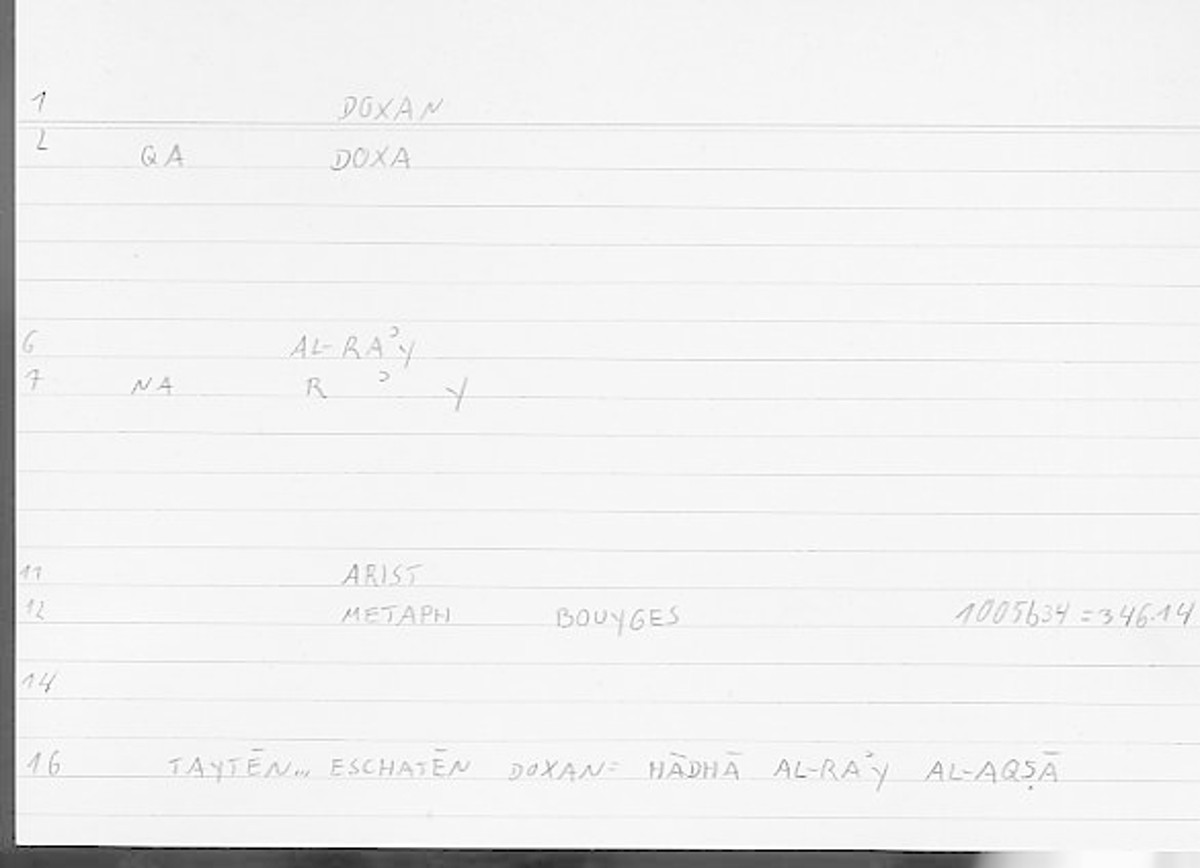 1 DOXAN
2 QA DOXA
6 AL-RAʾY
7 NA R ʾ Y
11 ARIST
12 METAPH BOUYGES 1005b34 = 346.14
14
16 TAYTĒN... ESCHATĒN DOXAN = HĀDHĀ AL-RAʾY AL-AQṢĀ